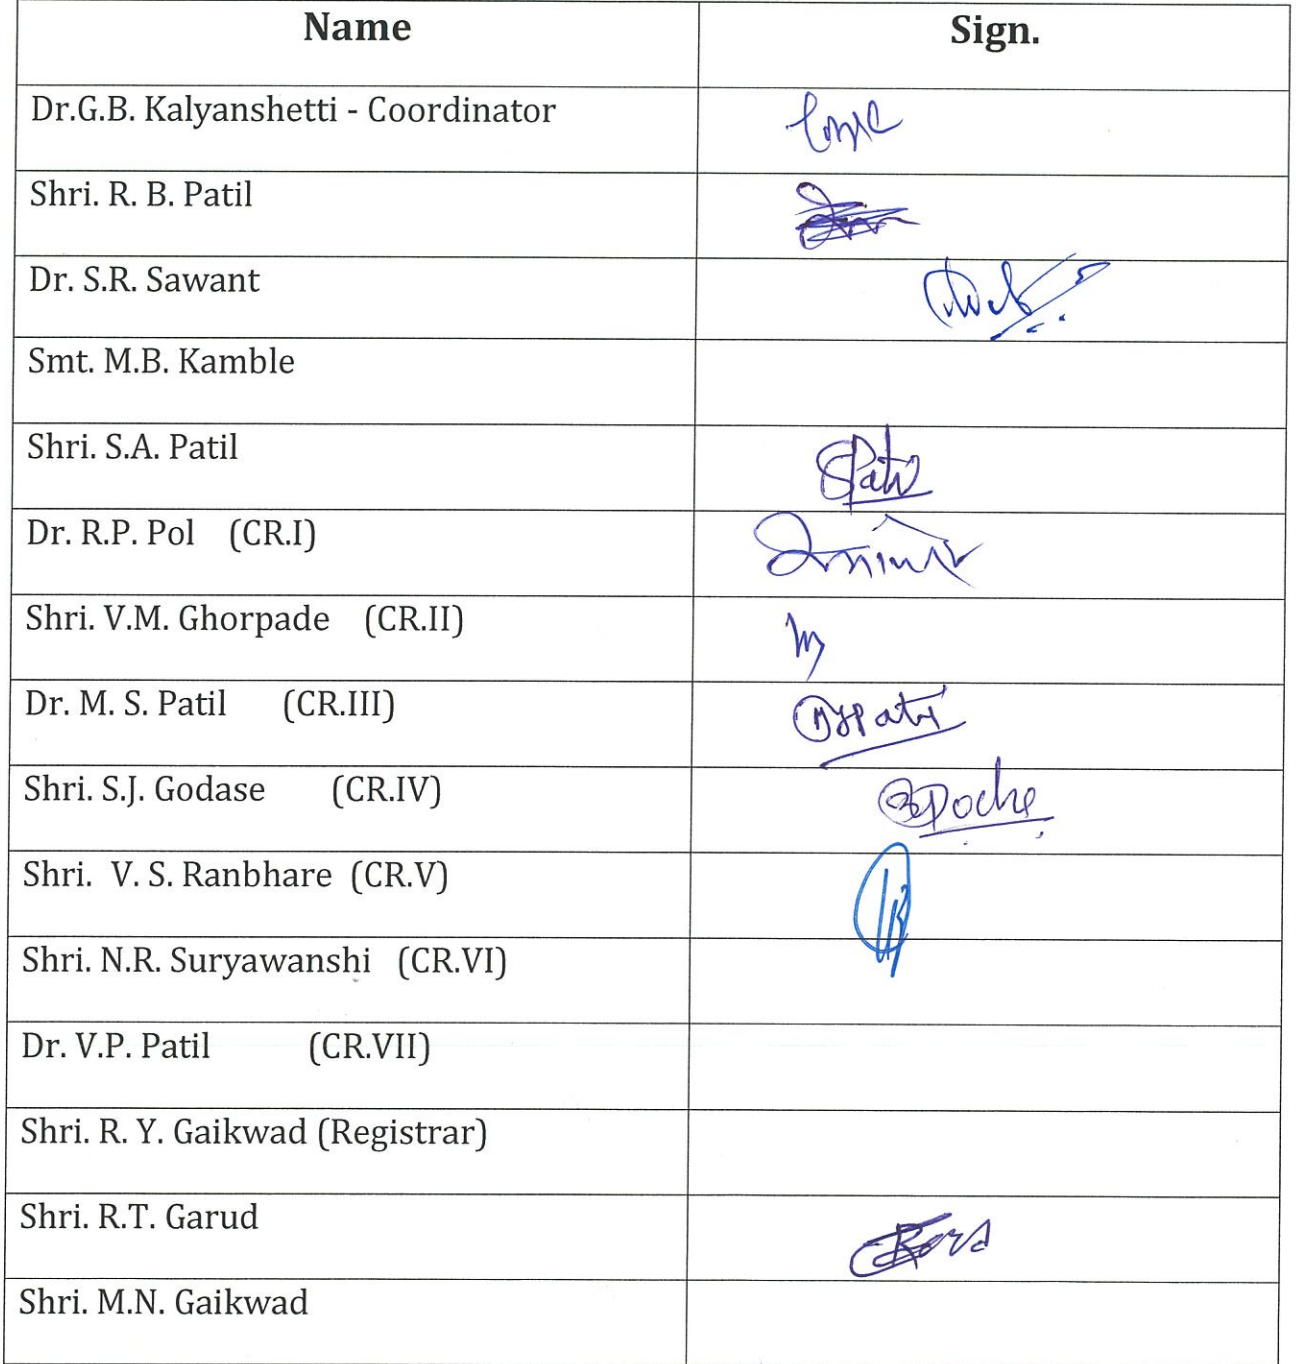 Name Sign.
Dr.G.B. Kalyanshetti - Coordinator
Shri. R. B. Patil
Dr. S.R. Sawant
Smt. M.B. Kamble
Shri. S.A. Patil SPatil
Dr. R.P. Pol (CR.I)
Shri. V.M. Ghorpade (CR.II)
Dr. M. S. Patil (CR.III)
Shri. S.J. Godase (CR.IV)
Shri. V. S. Ranbhare (CR.V)
Shri. N.R. Suryawanshi (CR.VI)
Dr. V.P. Patil (CR.VII)
Shri. R. Y. Gaikwad (Registrar)
Shri. R.T. Garud
Shri. M.N. Gaikwad